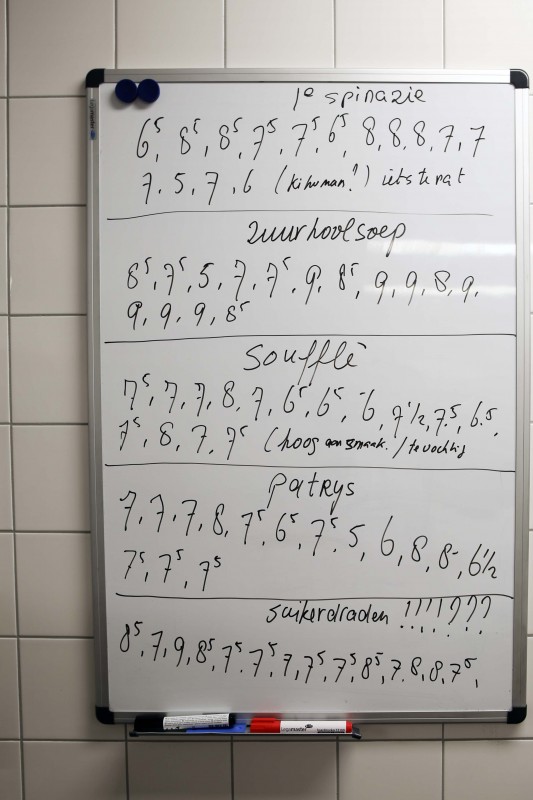 1e spinazie
6⁵, 8⁵, 8⁵, 7⁵, 7⁵, 6⁵, 8, 8, 8, 7, 7
7.5, 7, 6 (kihuman?) iets te nat
zuurkoolsoep
8⁵, 7⁵, 5, 7, 7⁵, 9, 8⁵, 9, 9, 8, 9,
9, 9, 9, 8⁵
Soufflè
7⁵, 7, 7, 8, 7, 6⁵, 6⁵, -6, 7½, 7.5, 6.5,
7⁵, 8, 7, 7⁵ (hoog aan smaak. / te vochtig
Patrys
7, 7, 7, 8, 7⁵, 6⁵, 7⁵.5, 6, 8, 8-, 6½
7⁵, 7⁵, 7⁵
suikerdraden !!!!???
8⁵, 7, 9, 8⁵, 7⁵, 7⁵, 7, 7⁵, 7⁵, 8⁵, 7.8, 8, 7⁵,